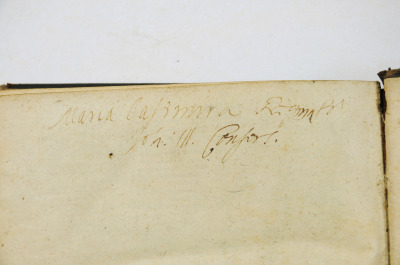 Maria Casimira
Joh: III. Consors.